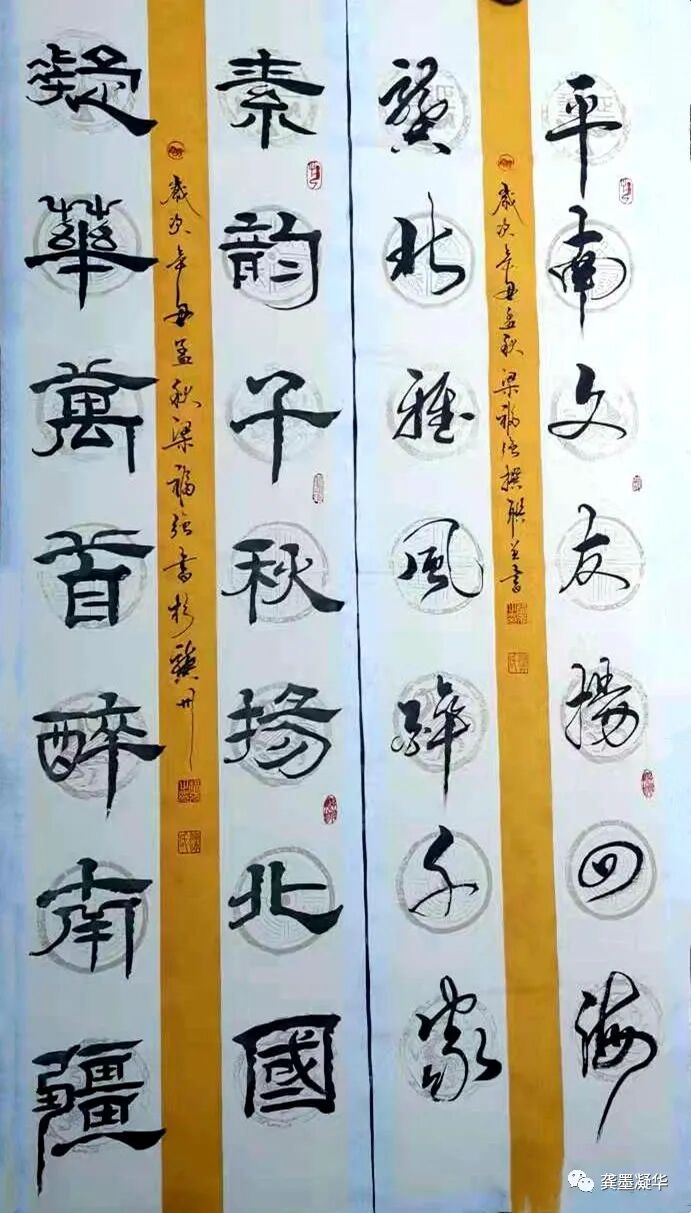 平南文友揚四海
歲次辛丑孟秋梁福强撰聯並書
龔雅風醉千家
素韵千秋揚北國
歲次辛丑孟秋梁福强書於龔州
凝華萬首醉南疆
龚墨凝华